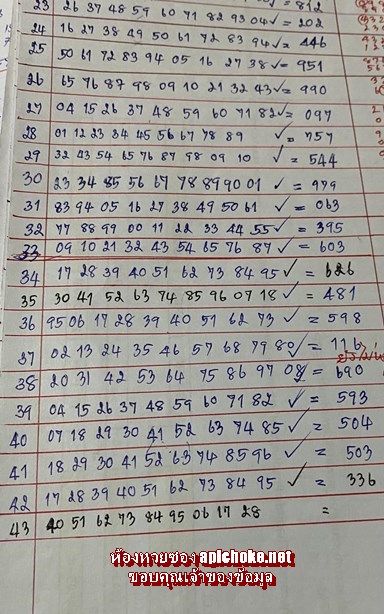 23 26 37 48 59 60 71 82 93 04 ✓ = 812
24 16 27 38 49 50 61 72 83 94 ✓ = 446
25 50 61 72 83 94 05 16 27 38 ✓ = 951
26 65 76 87 98 09 10 21 32 43 ✓ = 990
27 04 15 26 37 48 59 60 71 82 ✓ = 097
28 01 12 23 34 45 56 67 78 89 ✓ = 757
29 32 43 54 65 76 87 98 09 10 ✓ = 544
30 23 34 85 56 67 78 89 90 01 ✓ = 979
31 83 94 05 16 27 38 49 50 61 ✓ = 063
32 77 88 99 00 11 22 33 44 55 ✓ = 395
33 09 10 21 32 43 54 65 76 87 ✓ = 603
34 17 28 39 40 51 62 73 84 95 ✓ = 626
35 30 41 52 63 74 85 96 07 18 ✓ = 481
36 95 06 17 28 39 40 51 62 73 ✓ = 598
37 02 13 24 35 46 57 68 79 80 ✓ = 116
38 20 31 42 53 64 75 86 97 08 ✓ = 690
39 04 15 26 37 48 59 60 71 82 ✓ = 593
40 07 18 29 30 41 52 63 74 85 ✓ = 504
41 18 29 30 41 52 63 74 85 96 ✓ = 503
42 17 28 39 40 51 62 73 84 95 ✓ = 336
43 40 51 62 73 84 95 06 17 28 =
ห้องหวยซอง apichoke.net
ขอบคุณเจ้าของข้อมูล